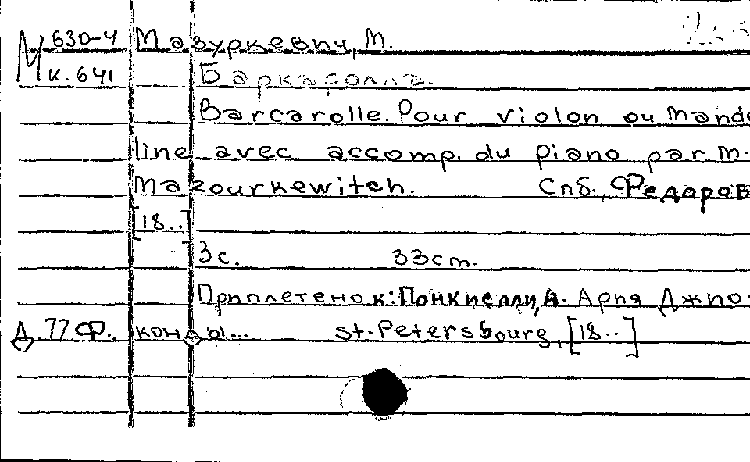 М 630-4 Мазуркевич, М.
к. 641 Баркаролла.
Barcarolle. Pour violon ou mando
line avec accomp. du piano par M.
Mazourkewitch. Спб., Федоров
[18..]
3с. 33cm.
Приплетено к: Понкиелли, А. Ария Джио-
Д. 77 Ф. конды... st. Petersbourg, [18..]